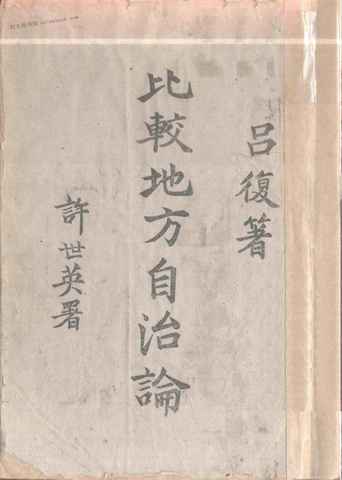 呂復著
比較地方自治論
許世英署